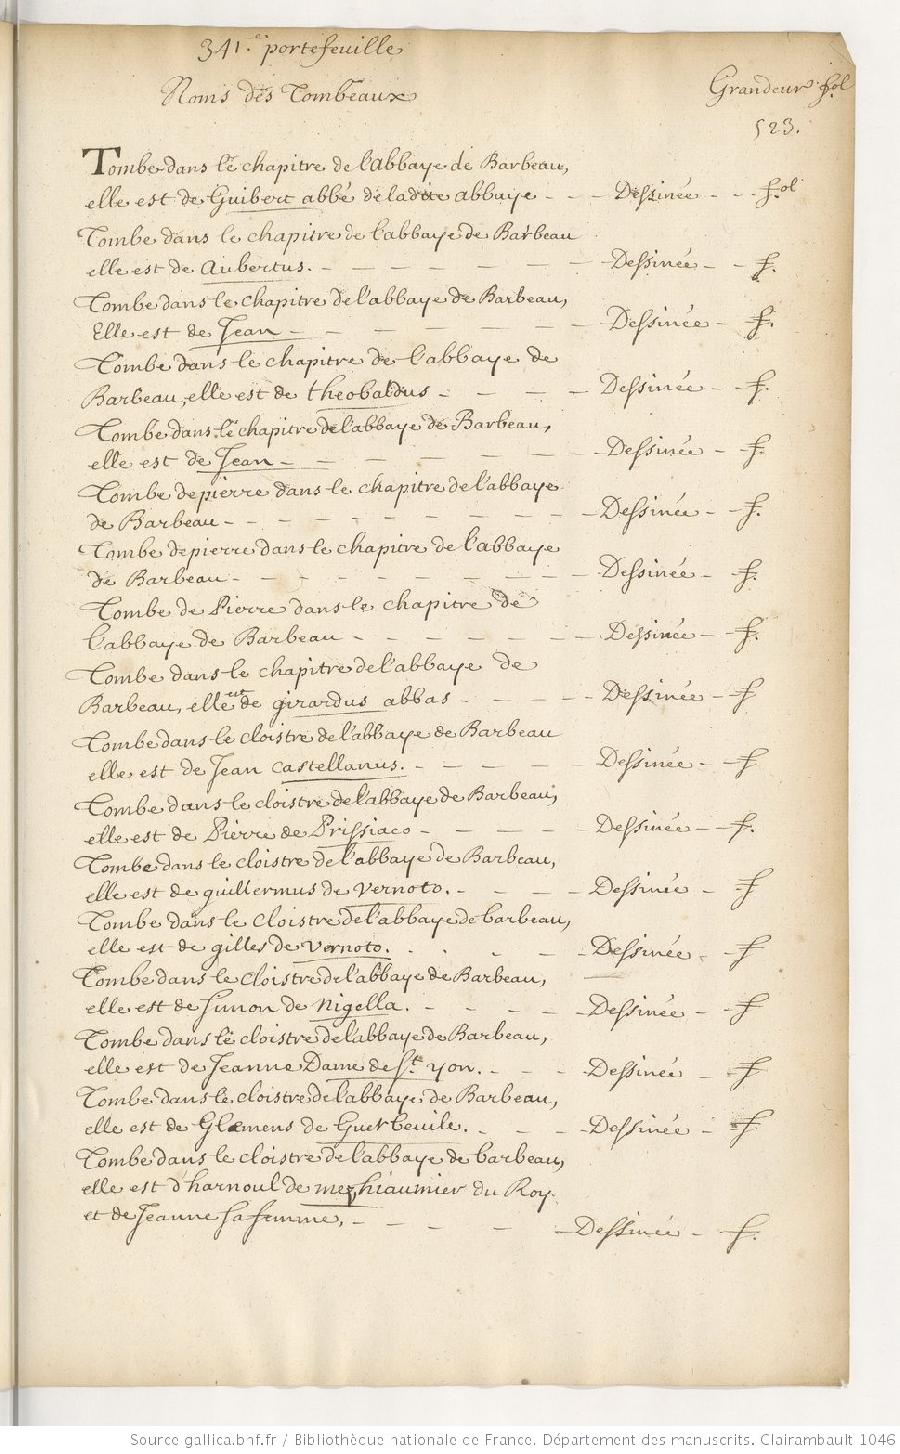 341.e portefeuille
Noms des Tombeaux
Grandeur fol
523.
Tombe dans le chapitre de l'abbaye de Barbeau,
elle est de Guibert abbé de ladite abbaye - - Dessinée - - fol
Tombe dans le chapitre de l'abbaye de Barbeau
elle est de Aubertus. - - - - - - - Dessinée - - f.
Tombe dans le chapitre de l'abbaye de Barbeau,
Elle est de Jean - - - - - - - Dessinée - f.
Tombe dans le chapitre de l'abbaye de
Barbeau, elle est de theobaldus - - - - Dessinée - f.
Tombe dans le chapitre de l'abbaye de Barbeau,
elle est de Jean - - - - - - - Dessinée - f.
Tombe de pierre dans le chapitre de l'abbaye
de Barbeau - - - - - - - - - Dessinée - f.
Tombe de pierre dans le chapitre de l'abbaye
de Barbeau - - - - - - - - - Dessinée - f.
Tombe de Pierre dans le chapitre de
l'abbaye de Barbeau - - - - - - - Dessinée - f.
Tombe dans le chapitre de l'abbaye de
Barbeau, elle est de girardus abbas - - - - Dessinée - f
Tombe dans le cloistre de l'abbaye de Barbeau
elle est de Jean castellanus. - - - - - Dessinée - f
Tombe dans le cloistre de l'abbaye de Barbeau,
elle est de Pierre de Prissiaco - - - - - Dessinée - f.
Tombe dans le cloistre de l'abbaye de Barbeau,
elle est de guillermus de vernoto. - - - - Dessinée - f
Tombe dans le Cloistre de l'abbaye de barbeau,
elle est de gilles de vernoto. - - - - Dessinée - f
Tombe dans le Cloistre de l'abbaye de Barbeau,
elle est de Simon de Nigella. - - - - Dessinée - f
Tombe dans le cloistre de l'abbaye de Barbeau,
elle est de Jeanne Dame de St. yon. - - - Dessinée - f
Tombe dans le cloistre de l'abbaye de Barbeau,
elle est de Glemens de Guerbevile. - - - Dessinée - f
Tombe dans le cloistre de l'abbaye de barbeau,
elle est d'harnoul de du Roy.
et de Jeanne sa femme, - - - - - Dessinée - f.
Source gallica.bnf.fr / Bibliothèque nationale de France. Département des manuscrits. Clairambault 1046